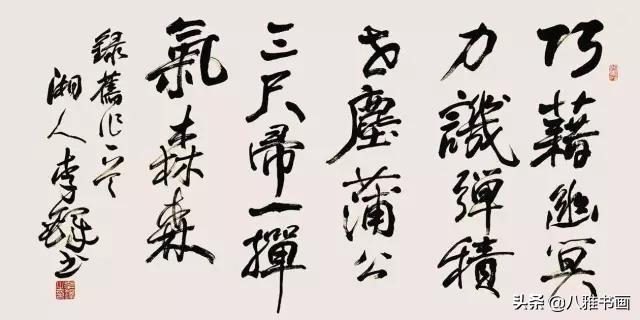 巧藉幽冥
力譏彈積
世塵蒲公
三尺帚一撣
氣森森
録舊作一首
湘人李鐸书
头条 @八雅书画